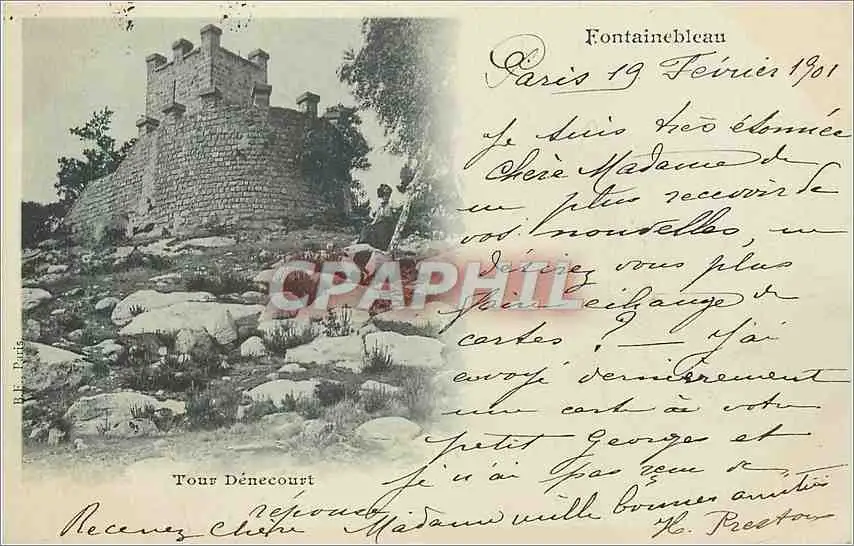 Fontainebleau
Paris 19 Février 1901
Je suis très étonnée
chère Madame de
ne plus recevoir de
vos nouvelles, ne
désirez vous plus
faire échange de
cartes ? — J'ai
envoyé dernièrement
une carte à votre
petit Georges et
je n'ai pas reçu de
réponse
Recevez chère Madame mille bonnes amitiés
H. Preston
Tour Dénecourt
B.F. Paris
CPAPHIL